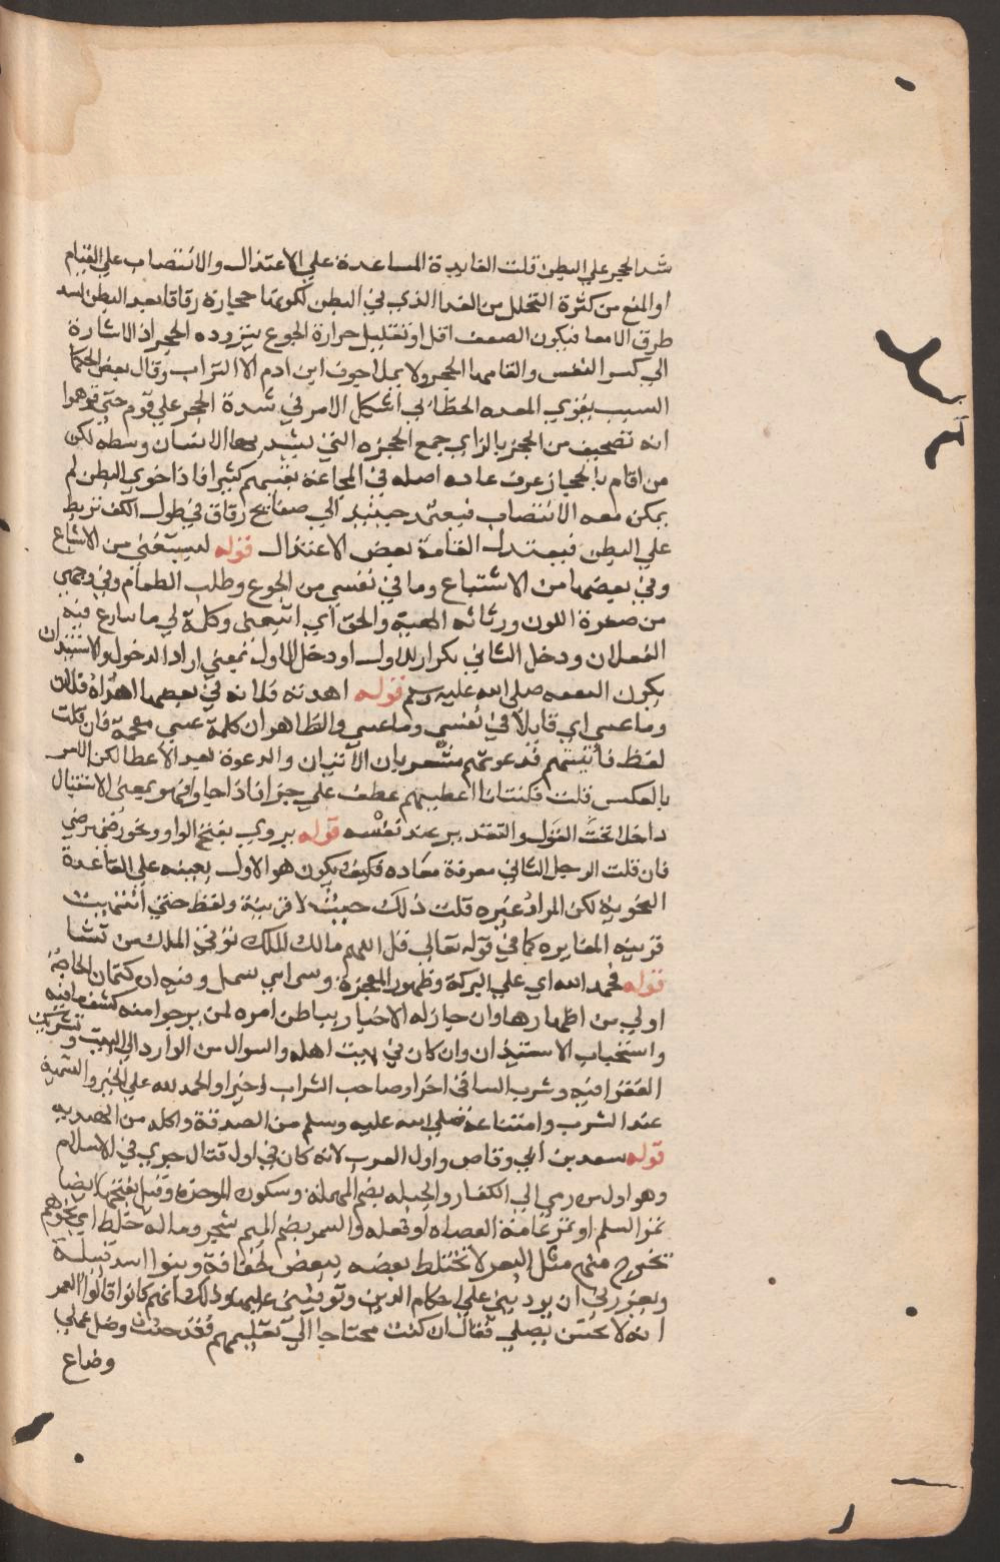 شد الحجر علي البطن قلت الفايدة المساعدة علي الاعتدال والانتصاب علي القيام
او المنع من كثرة التحلل من الغدا الذي في البطن لكونها حجارة رقاقا بعد البطن لسد
طرق الامعا فيكون الضعف اقل او تقليل حرارة الجوع ببرودة الحجر اذ الاشارة
الي كسر النفس والقامها الحجر ولا يملا جوف ابن ادم الا التراب وقال بعض الحكما
السبب يقوي المعده الخطابي اشكل الامر في شدة الحجر علي قوم حتي توهموا
انه تصحيف من الحجز بالزاي جمع الحجزه التي يشد بها الانسان وسطه لكن
من اقام بالحجاز عرف عاده اصله في المجاعة تصيبهم كثيرا فاذا خوي البطن لم
يمكن معه الانتصاب فيعمد حينئذ الي صفايح رقاق في طول الكف تربط
علي البطن فيعتدل القامة بعض الاعتدال قوله ليستتبعني من الاتباع
وفي بعضها من الاشباع وما في نفسي من الجوع وطلب الطعام وفي وجهي
من صفرة اللون ورثاثه الهيية والحق اي اتبعني وكلمة لي ما تنازع فيه
الفعلان ودخل الثاني تكرار للاول او دخل الاول بمعني اراد الدخول والاستئذان
يكون لنفسه صلي الله عليه وسلم قوله اهدته فلانه في بعضها اهداه فلان
وما عسي اي قايلا في نفسي وما عسي والظاهر ان كلمة عسي مقحمة فان قلت
لفظ فاتيتهم فدعوتهم مشعر بان الاتيان والدعوة بعد الاعطا لكن الامر
بالعكس قلت فكنت انا اعطيهم عطف علي جزا فاذا جاوا فهو بمعني الاستقبال
داخلا تحت القول والتقدير عند نفسه قوله يروي بفتح الواو ونحو رضي يرضي
فان قلت الرجل الثاني معرفة معاده فيكون هو الاول بعينه علي القاعدة
النحوية لكن المراد غيره قلت ذلك حيث لا قرينة ولفظ حتي انتهيت
قرينه المغايره كما في قوله تعالي قل اللهم مالك الملك توتي الملك من تشا
قوله فحمد الله اي علي البركة وظهور المعجزة وسمي اي بسمل وفيه ان كتمان الحاجة
اولي من اظهارها وان جاز له الاخبار بباطن امره لمن يرجو منه كشف ما فيه
واستحباب الاستئذان وان كان في بيت اهله والسوال من الوارد الي البيت وتشريك
الفقرا فيه وشرب الساقي اخرا وصاحب الشراب اخيرا والحمد لله علي الخير والتسمية
عند الشرب وامتناعه صلي الله عليه وسلم من الصدقة واكله من الهديه
قوله سعد بن ابي وقاص واول العرب لانه كان في اول قتال جري في الاسلام
وهو اول من رمي الي الكفار والحبله بضم المهملة وسكون الموحدة وقيل بفتحها ايضا
ثمر السلم او ثمر عامة العضاه او فعله والسمر بضم الميم شجر وماله خلط اي نجوهم
تخرج منهم مثل البعر لا تختلط بعضه ببعض لجفافة وبنوا اسد قبيلة
وتعزرني ان يوديني علي احكام الدين وتوقيني عليها وذلك انهم كانوا قالوا لعمر
انه لا يحسن يصلي فقال ان كنت محتاجا الي تعليمهم فقد خبت وضل عملي
وضاع